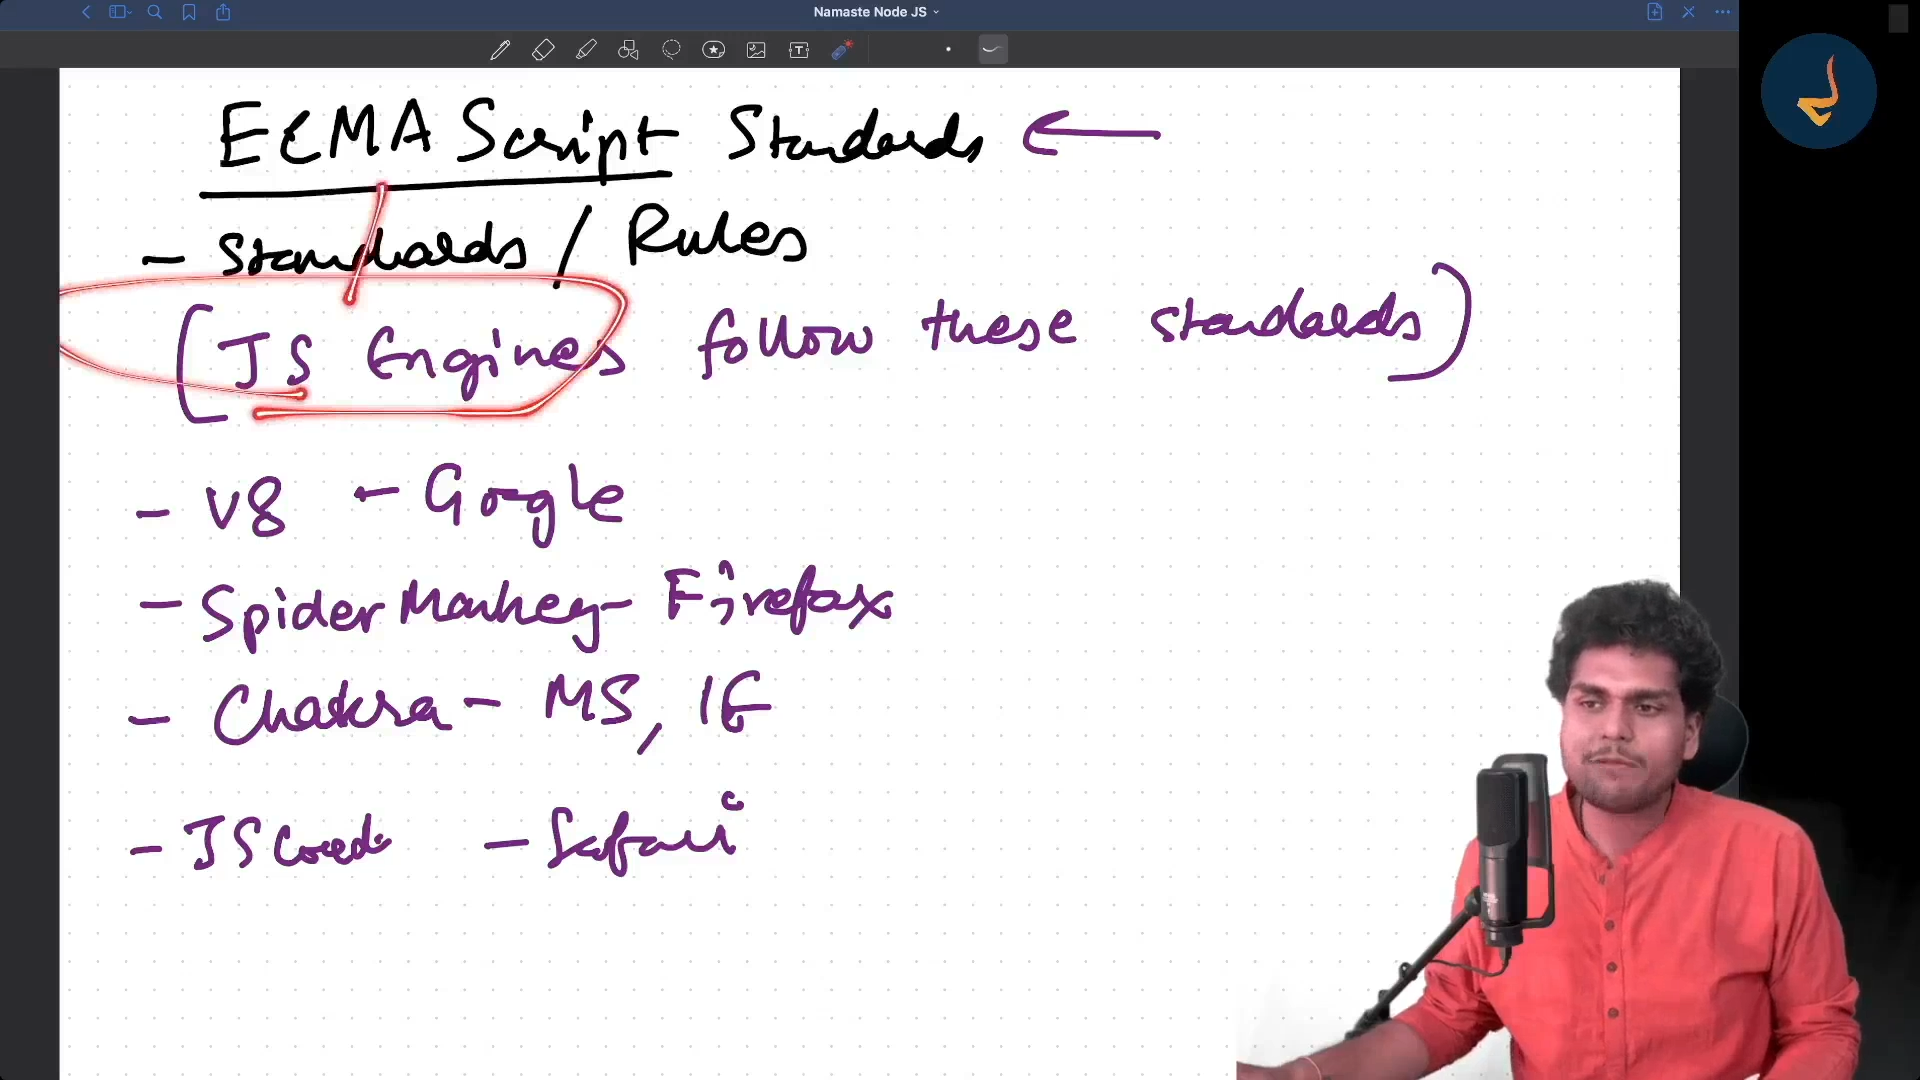 Namaste Node JS
ECMA Script Standards ←
- Standards / Rules
(JS Engines follow these standards)
- V8 - Google
- Spider Monkey - Firefox
- Chakra - MS, IE
- JS Core - Safari